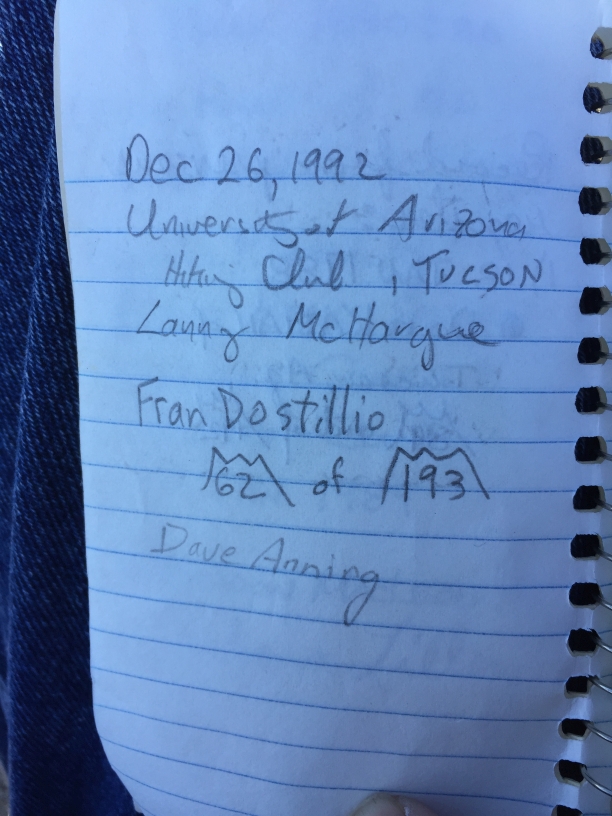 Dec 26, 1992
University of Arizona
Hiking Club, TUCSON
Lanny McHargue
Fran Dostillio
62 of 193
Dave Anning